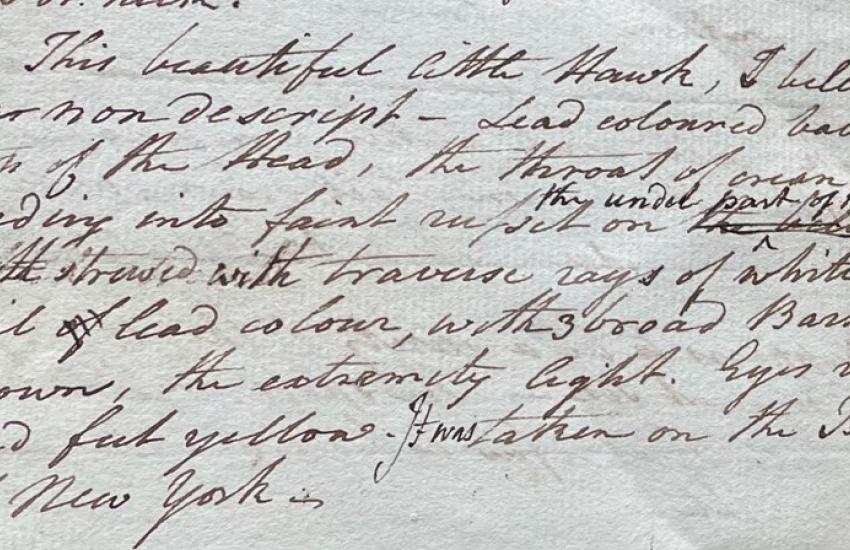 This beautiful little Hawk, I
non descript - Lead coloured
of the Head, the throat of cream
into faint russet on the under part of
strused with traverse rays of white
of lead colour, with 3 broad Bars
the extremity light. Eyes
feet yellow. It was taken on the
New York